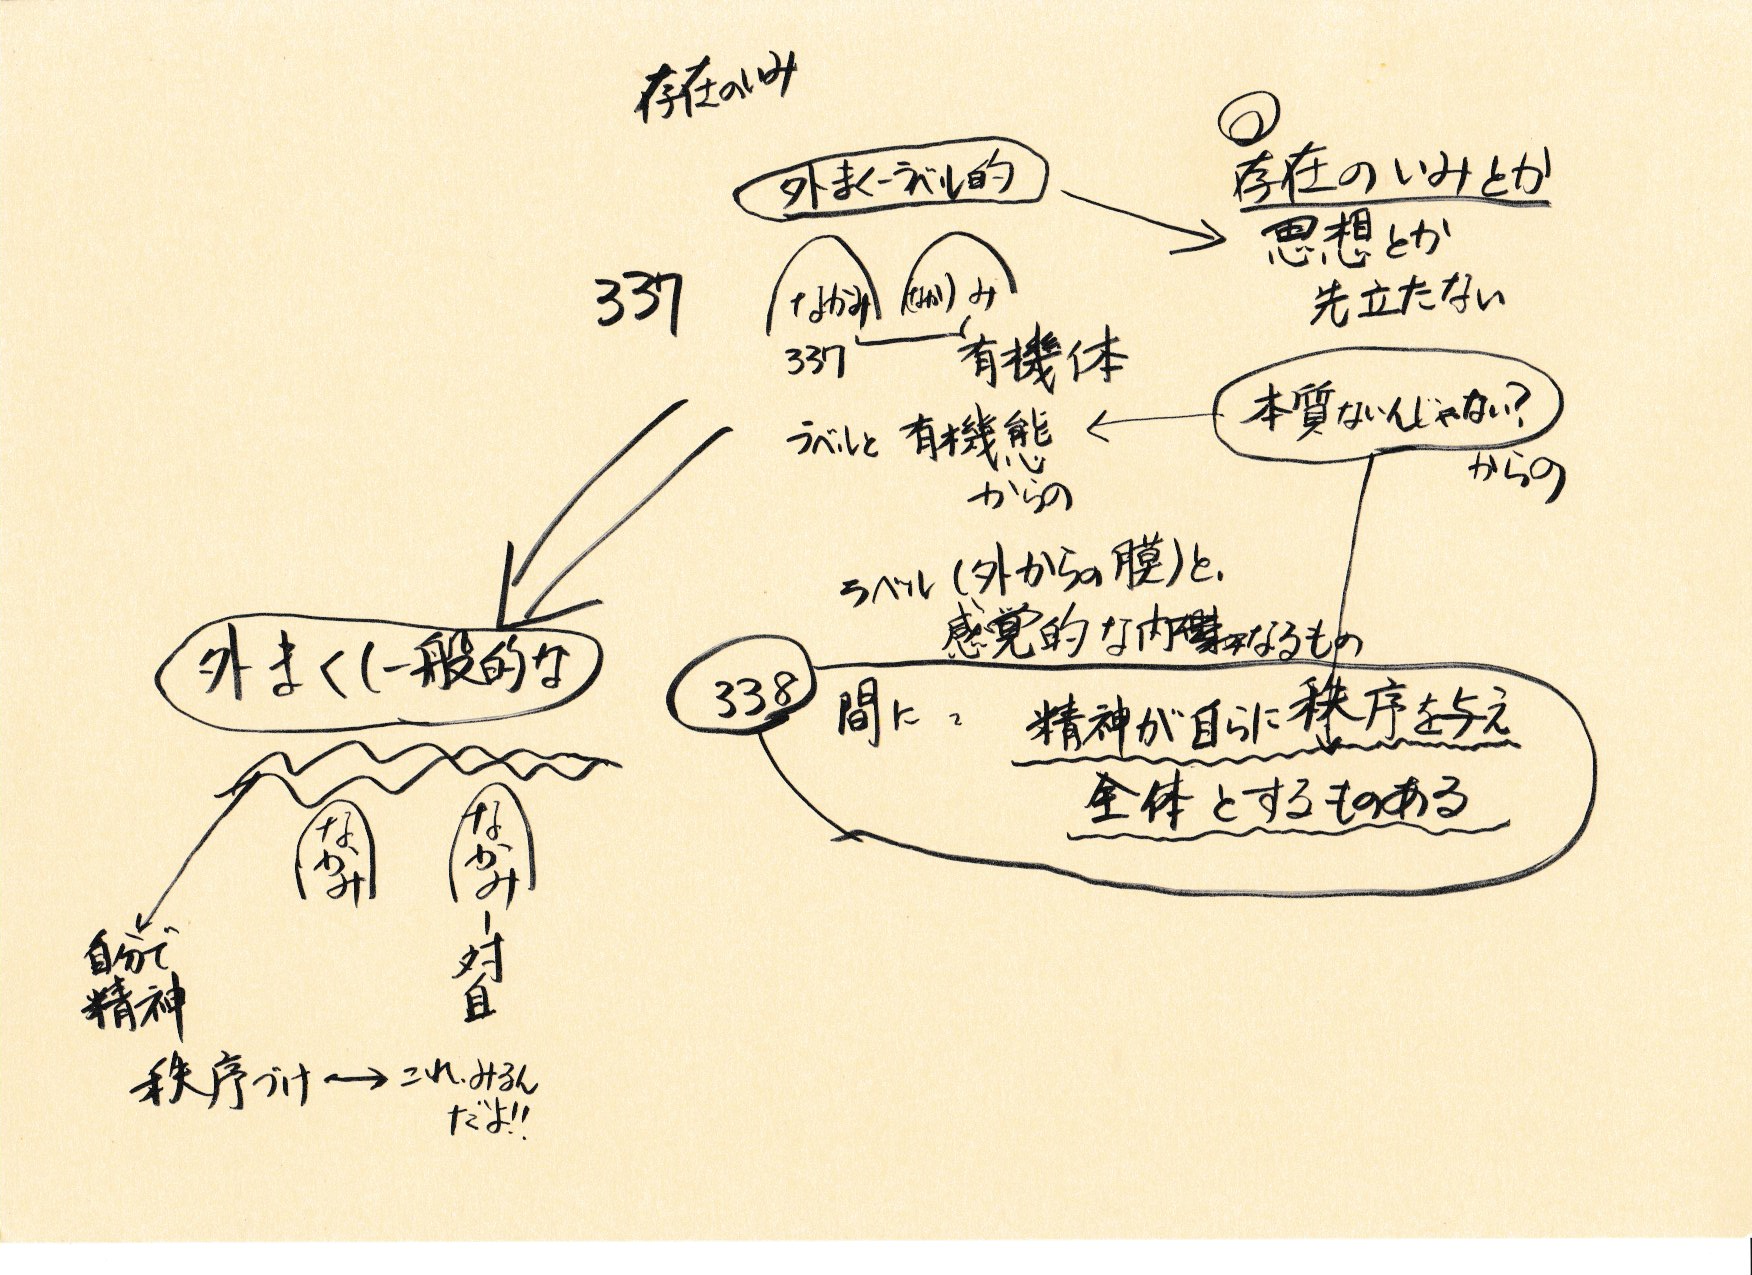 存在のいみ
外まく-ラベル的
存在のいみとか
思想とか
先立たない
337
なかみ
(なか)み
337
有機体
本質ないんじゃない?
からの
ラベルと有機態
からの
ラベル(外からの膜)と、
感覚的な内なるもの
外まく(一般的な
338
間に、
精神が自らに秩序を与え
全体とするものある
なかみ
なかみ
対自
自分で
精神
秩序づけ→これ、みるん
だよ!!